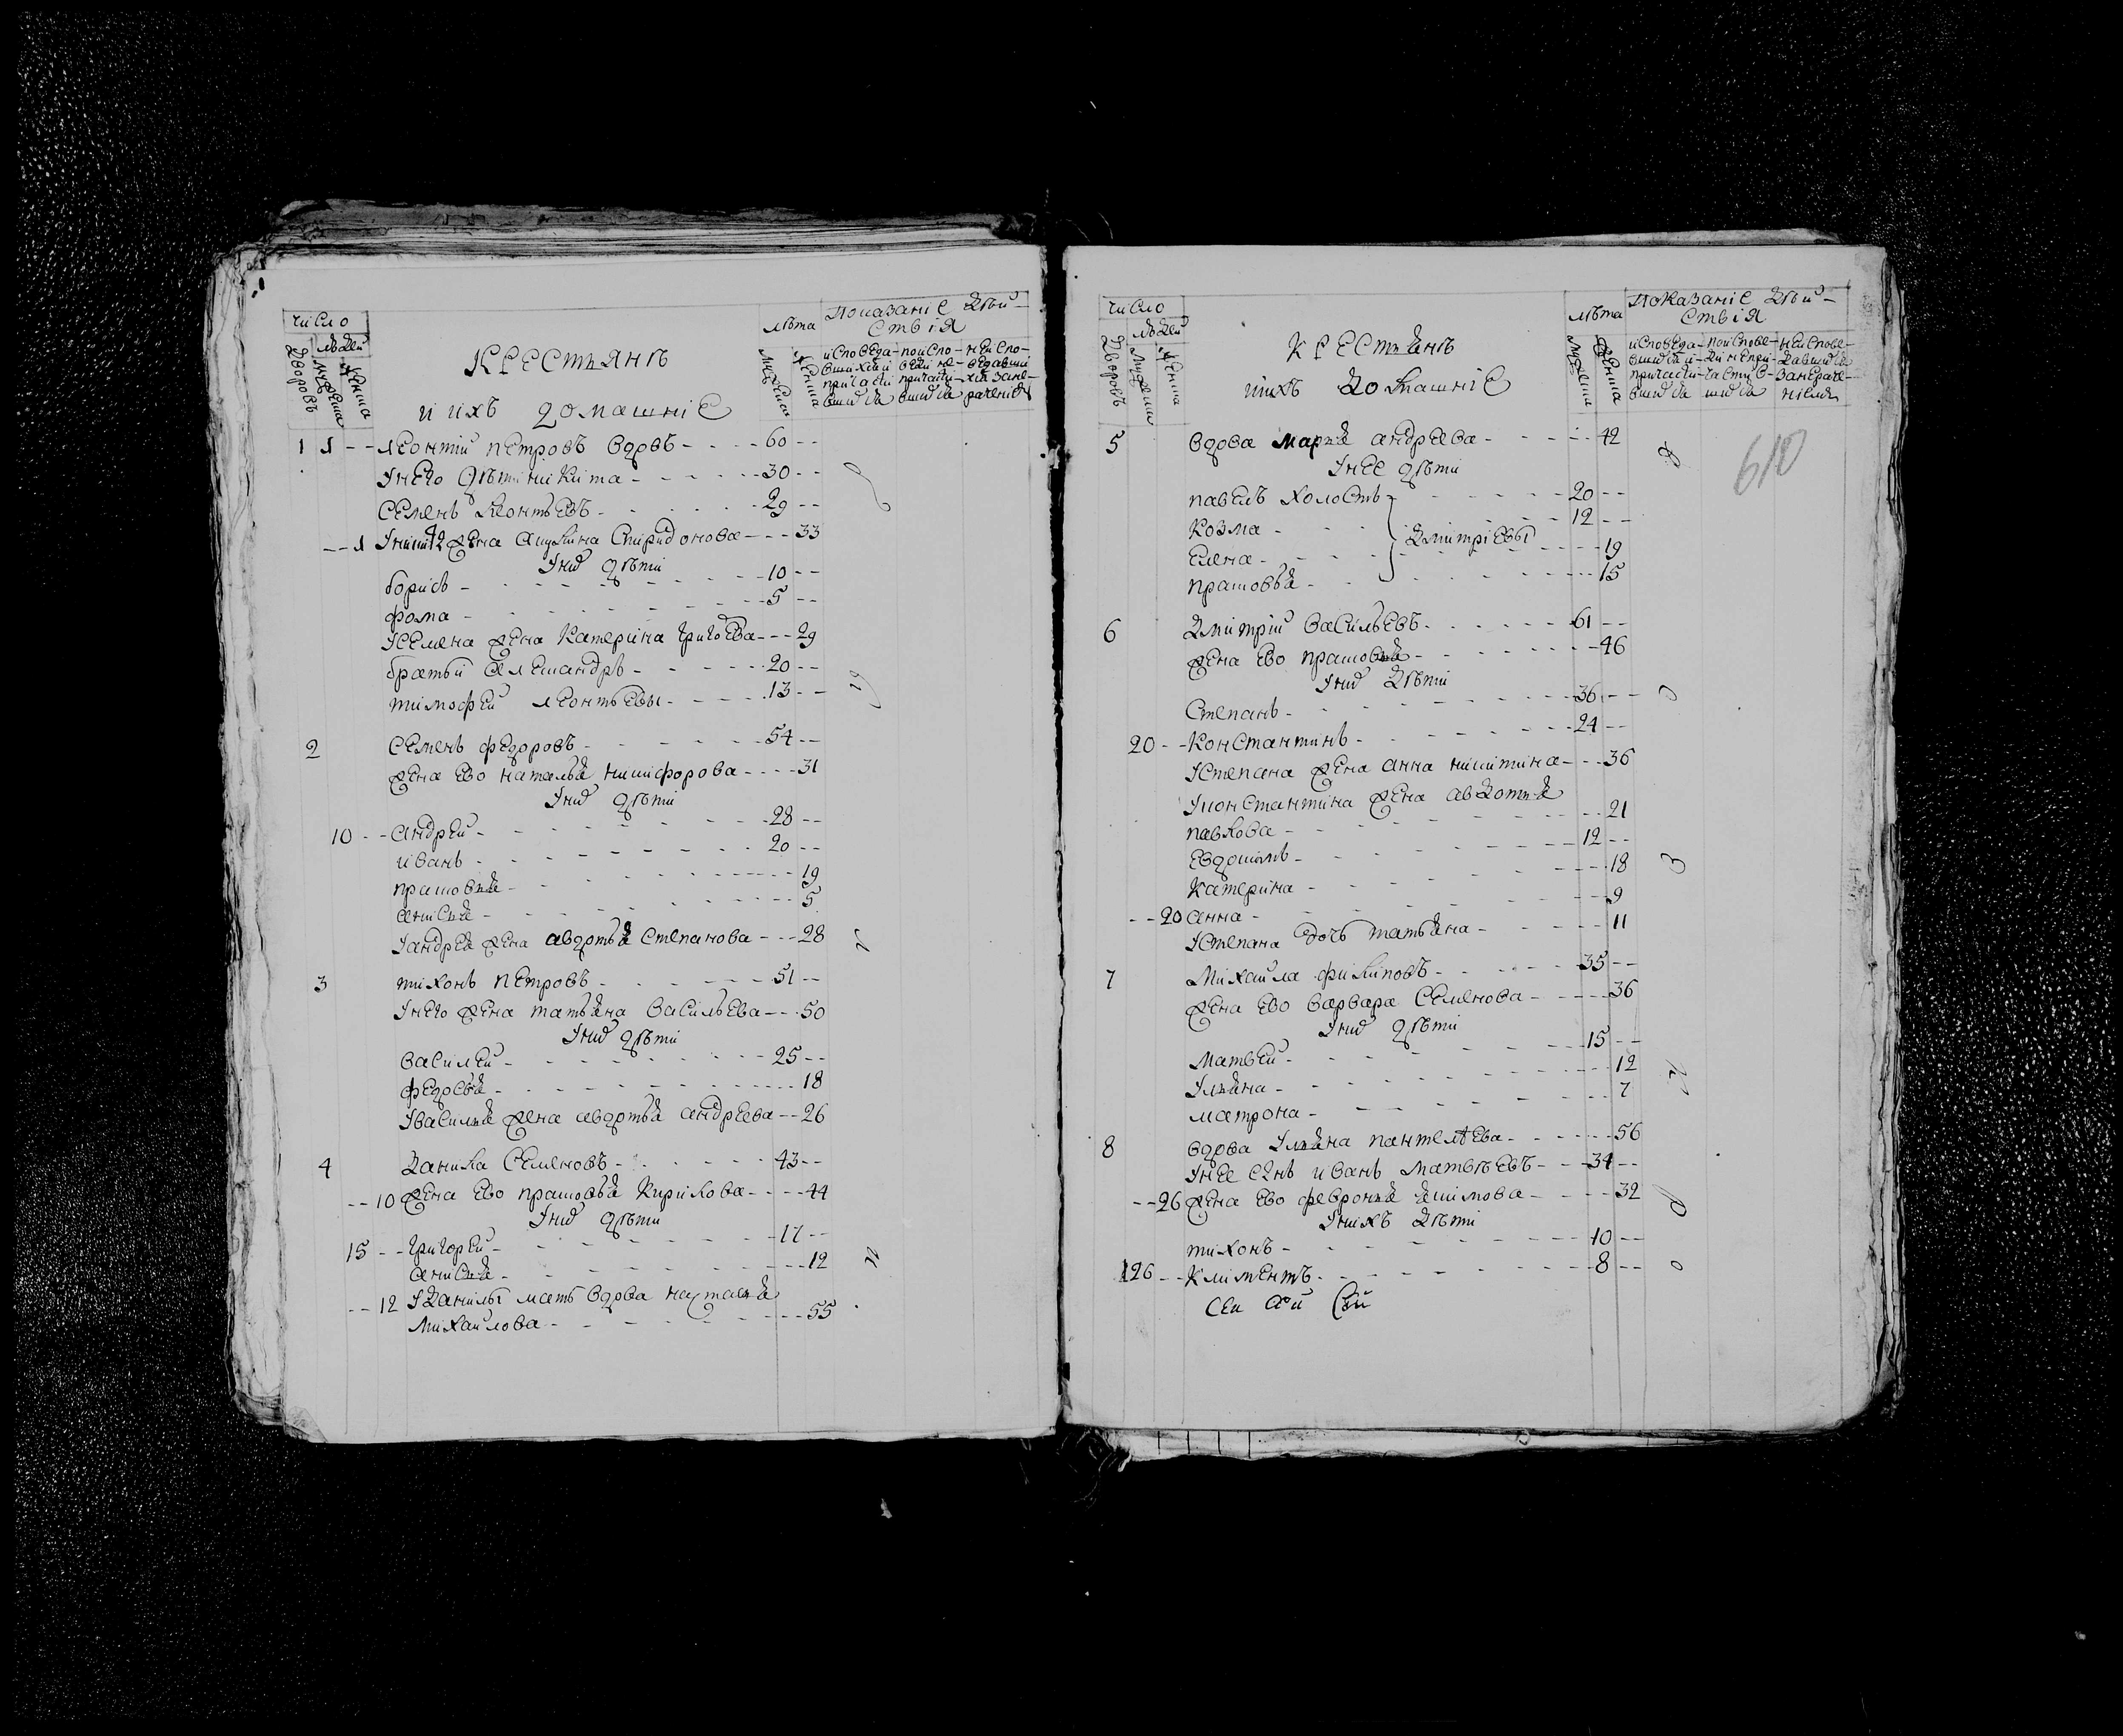 число
людей
Дворовъ
мужеска
женска
крестьянъ
и ихъ домашніе
лѣта
мужеска
женска
показаніе дѣй-
ствія
исповеда-
вшихся и
причасти
вшихся
1 1 -- леонтій петровъ вдовъ - - - - 60 --
Унего дѣти никита - - - - - 30 --
семенъ леонтьевъ - - - - 29 --
-- 1 Уникиты жена акулина спиридонова - - - 33
Уних дѣти
борисъ - - - - 10 --
фома - - - - 5 --
Усемена жена катерина григоева - - - 29
братьи александръ - - - - 20 --
тимофеи леонтьевы - - - - 13 --
2 семенъ федоровъ - - - - 54 --
жена ево наталья никифорова - - - - 31
Уних дѣти
10 - - андреи - - - - 28 --
иванъ - - - - 20 --
прасковья - - - - 19
анисья - - - - 5
Уандрея жена авдотья степанова - - - 28
3 тихонъ петровъ - - - - 51 --
Унего жена татьяна васильева - - - 50
Уних дѣти
василеи - - - - 25 --
федосья - - - - 18
Увасилья жена авдотья андреева - - 26
4 данила семеновъ - - - - 43 --
-- 10 жена ево прасковья кирилова - - - - 44
Уних дѣти
15 - - григореи - - - - 17 --
анисья - - - - 12
-- 12 Уданилы мать вдова насталья
михаилова - - - - 55
число
людей
Дворовъ
мужеска
женска
крестьянъ
иихъ домашніе
лѣта
мужеска
женска
показаніе дѣй-
ствія
исповеда-
вшися и
причасти-
вшихся
610
5 вдова марья андреева - - - - 42
Унее дѣти
павелъ холостъ - - - - 20 --
козма - - - - 12 --
дмитріевы
елена - - - - 19
прасковья - - - - 15
6 дмитрій васильевъ - - - - 61 --
жена ево прасковья - - - - 46
Уних дѣти
степанъ - - - - 36 --
20 - - константинъ - - - - 24 --
Устепана жена анна никитина - - - 36
Уконстантина жена авдотья
павлова - - - - 21
евдокимъ - - - - 12 --
катерина - - - - 18
-- 20 анна - - - - 9
Устепана дочь татьяна - - - - 11
7 михаила филиповъ - - - - 35 --
жена ево варвара семенова - - - - 36
Уних дѣти
матвеи - - - - 15 --
Ульяна - - - - 12
матрона - - - - 7
8 вдова Ульяна пантелѣева - - - - 56
Унее сынъ иванъ матвѣевъ - - - 34 --
-- 26 жена ево февронья якимова - - - - 32
Унихъ дѣти
тихонъ - - - - 10 --
126 - - климентъ - - - - 8 --